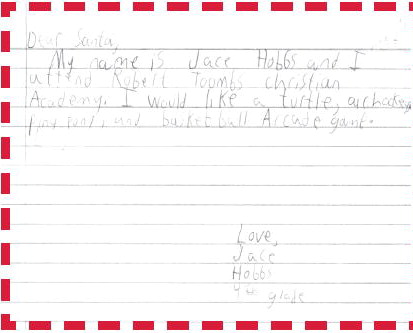 Dear Santa,
My name is Jace Hobbs and I
attend Robert Toombs christian
Academy. I would like a turtle, air hockey,
ping pong, and basket ball Arcade game.
Love,
Jace
Hobbs
4th grade